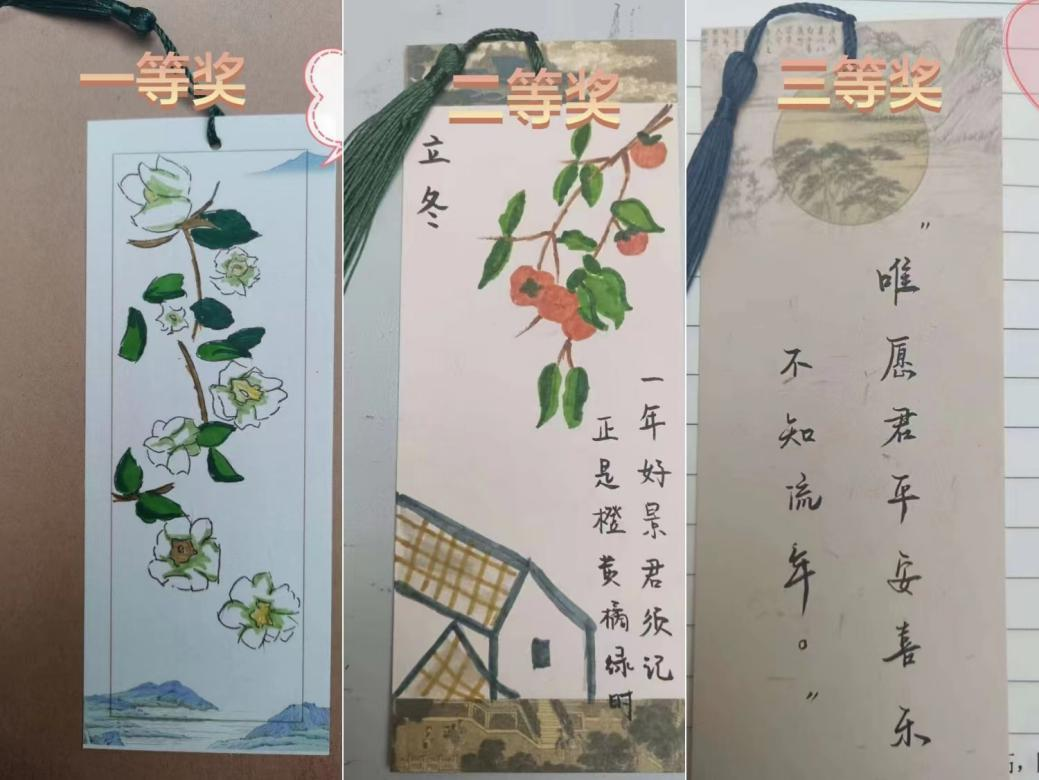 一等奖
二等奖
立冬
一年好景君须记
正是橙黄橘绿时
三等奖
"唯愿君平安喜乐
不知流年。"